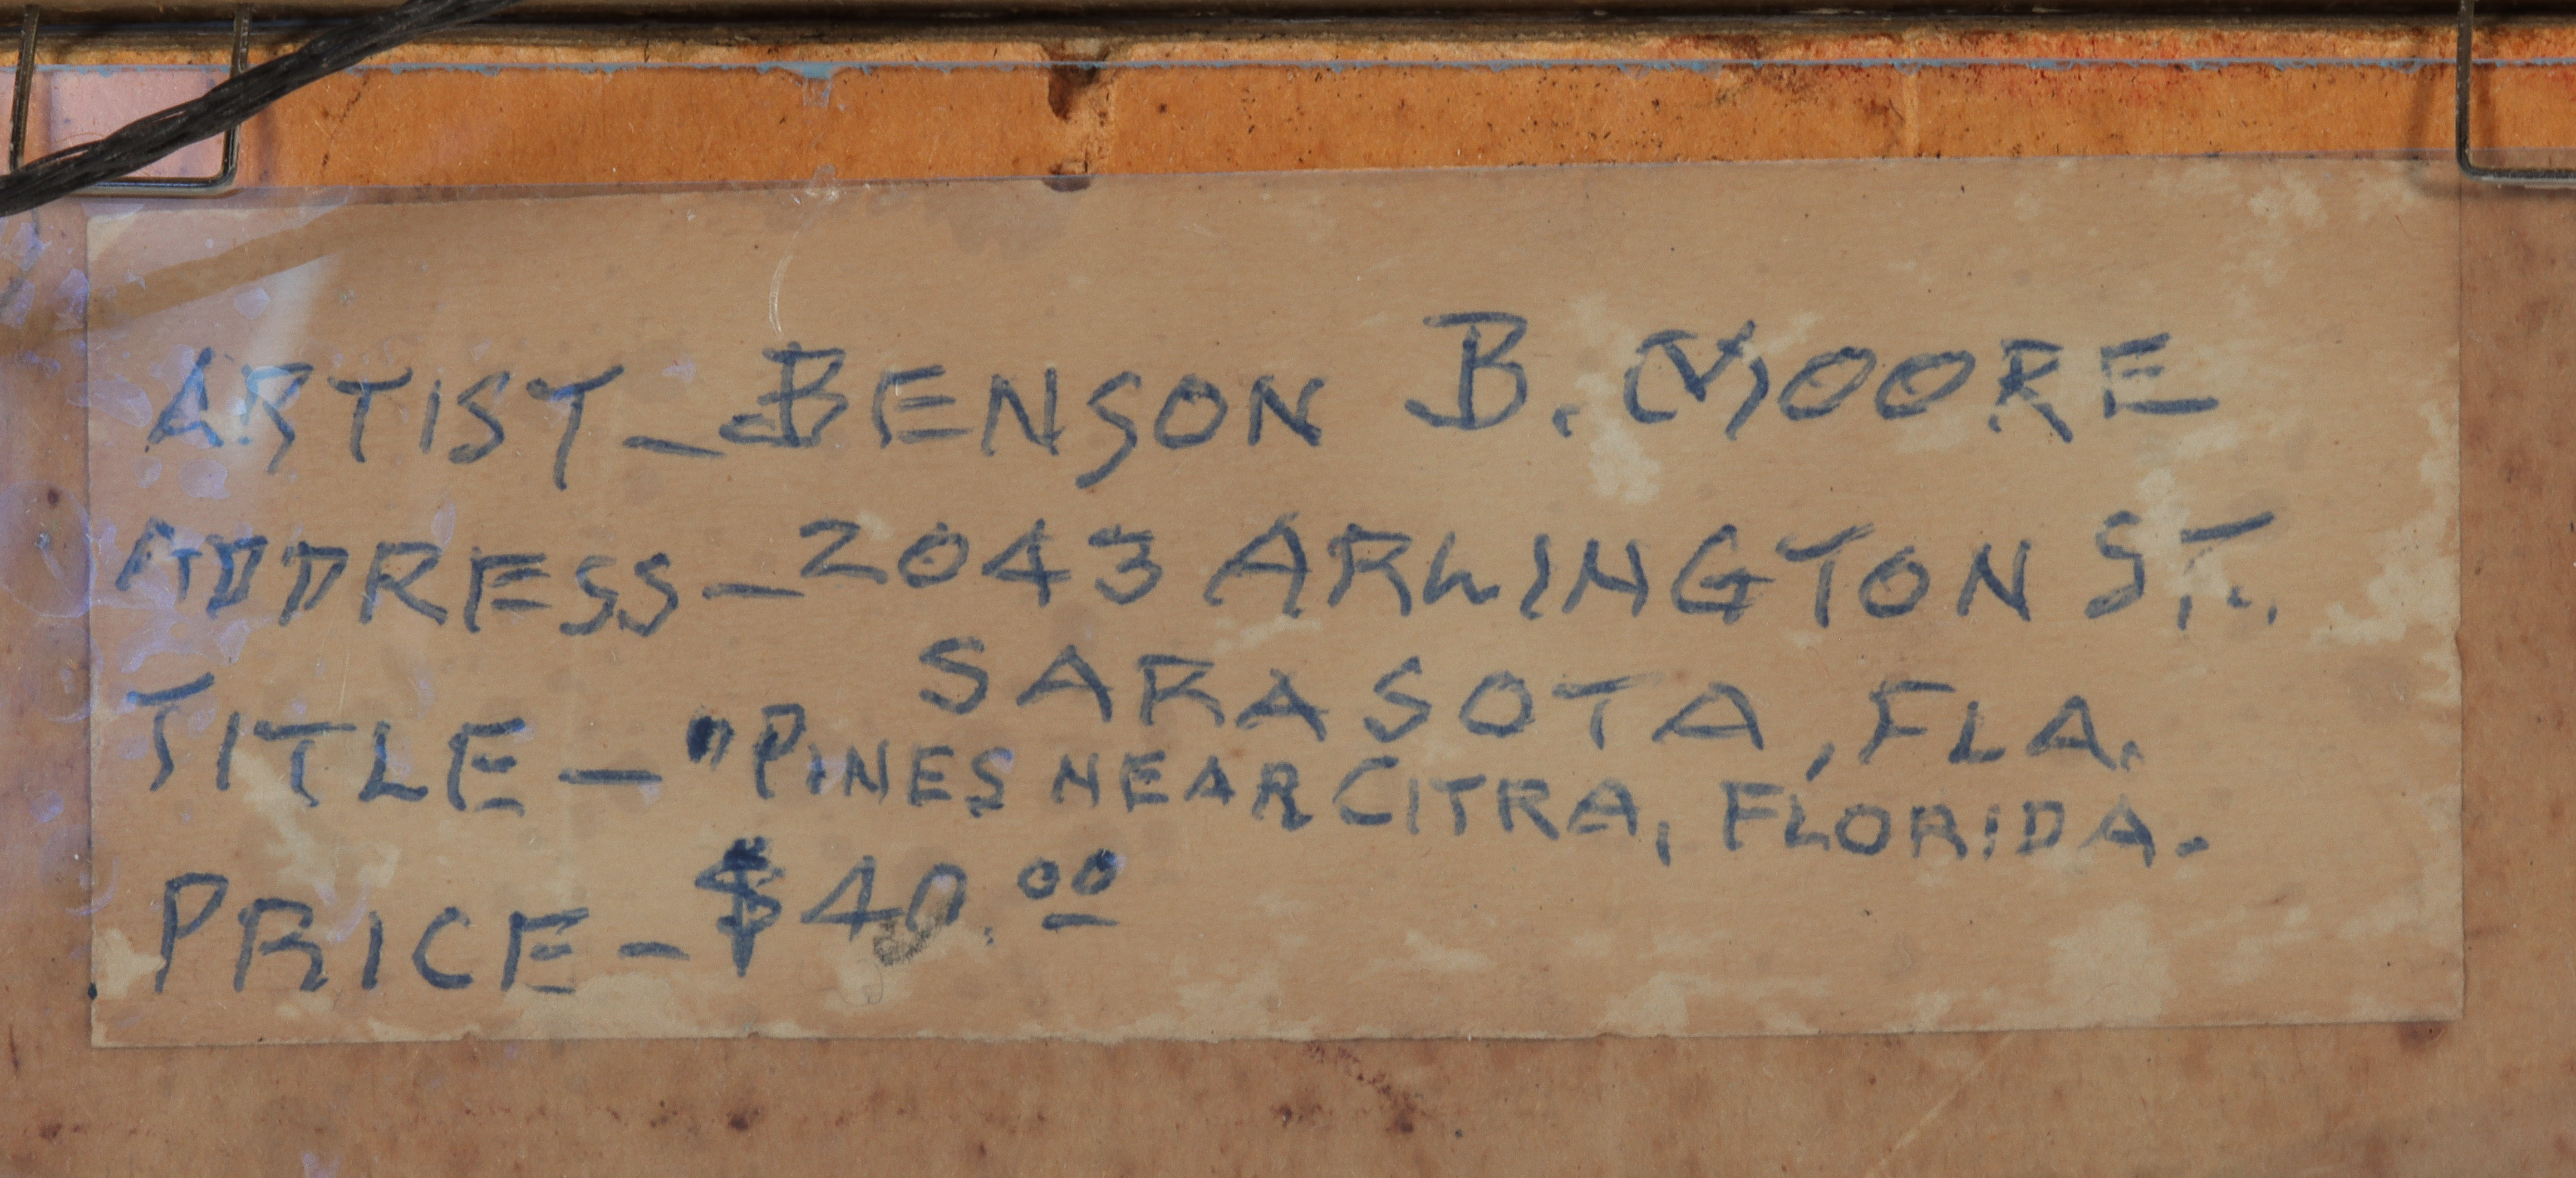 ARTIST - BENSON B. MOORE
ADDRESS - 2043 ARLINGTON ST.
SARASOTA, FLA.
TITLE - "PINES NEAR CITRA, FLORIDA.
PRICE - $40.00